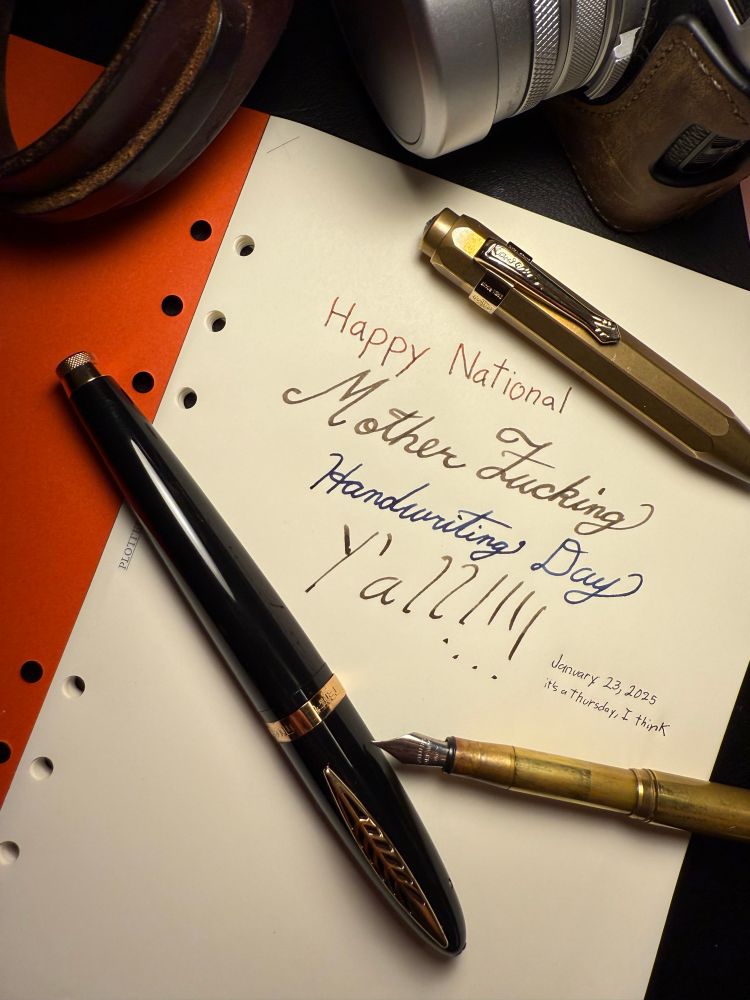 Happy National
Mother Fucking
Handwriting Day
Y'all!!!!
January 23, 2025
it's a Thursday, I think
Kaweco
PLOTTER